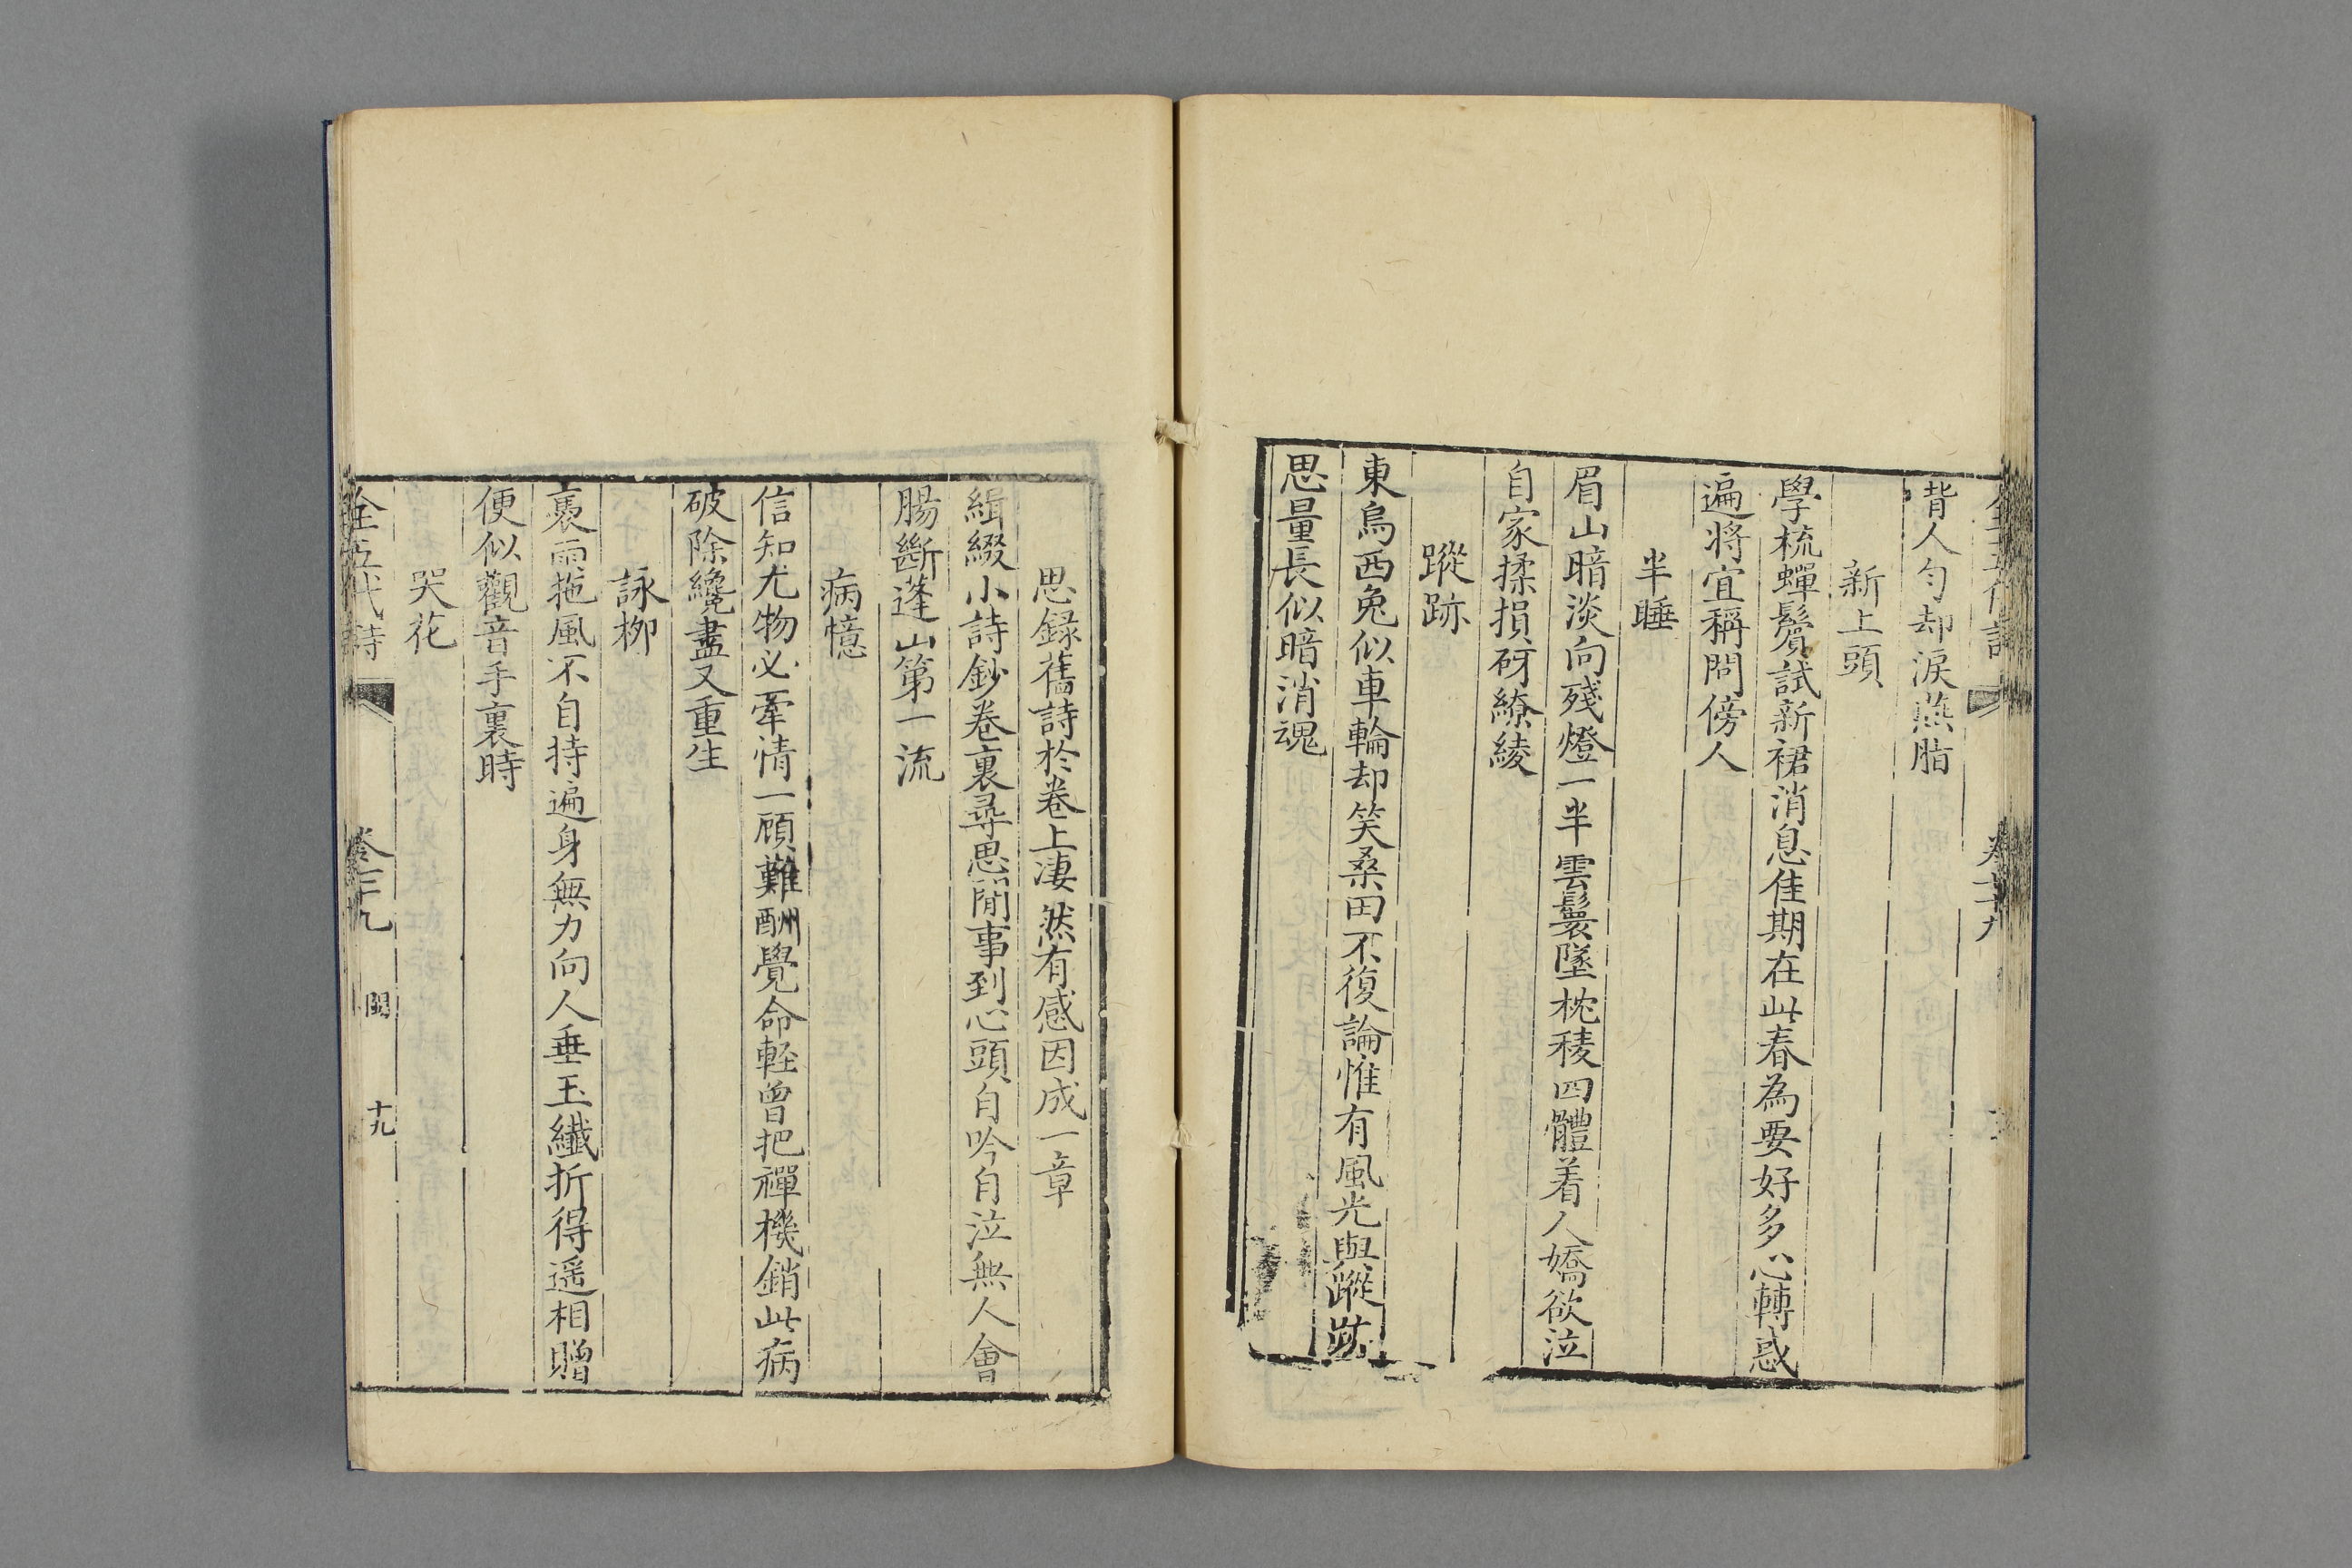 背人勻却淚燕脂
新上頭
學梳蟬鬢試新裙消息佳期在此春為要好多心轉惑
遍將宜稱問傍人
半睡
眉山暗淡向殘燈一半雲鬟墜枕稜四體着人嬌欲泣
自家揉損砑繚綾
蹤跡
東烏西兔似車輪却笑桑田不復論惟有風光與蹤跡
思量長似暗消魂
思錄舊詩於卷上凄然有感因成一章
緝綴小詩鈔卷裏尋思閒事到心頭自吟自泣無人會
腸斷蓬山第一流
病憶
信知尤物必牽情一顧難酬覺命輕曾把禪機銷此病
破除纔盡又重生
詠柳
裛雨拖風不自持遍身無力向人垂玉纖折得遥相贈
便似觀音手裏時
哭花
全五代詩 卷三九 閩 十九